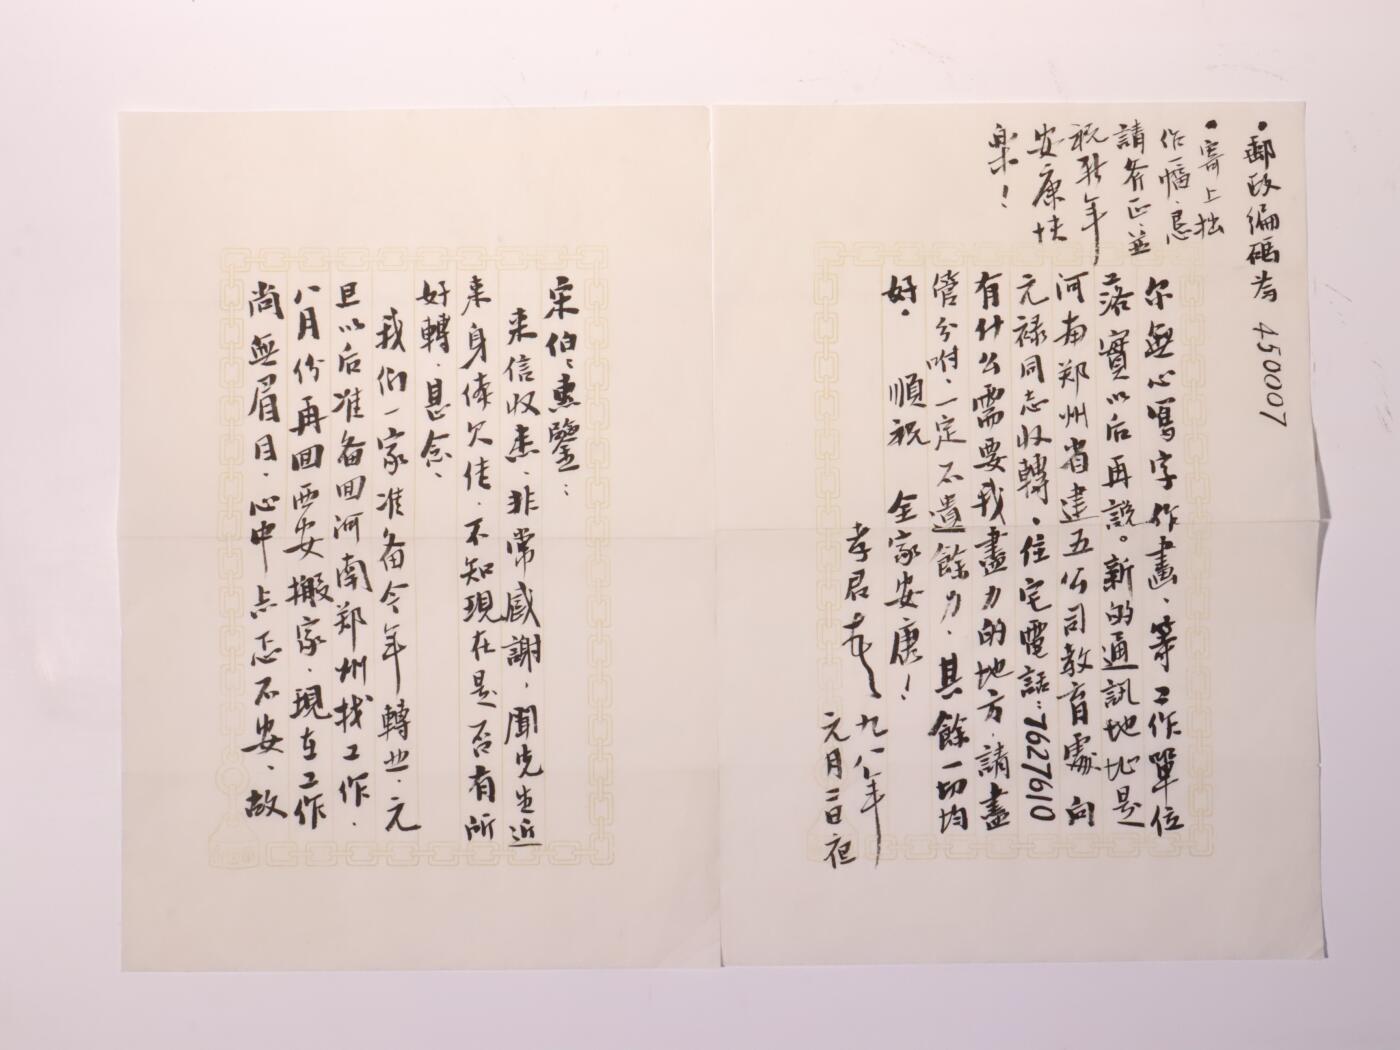 宋伯伯惠鑒：
来信收悉、非常感謝，聞先生近
来身体欠佳．不知現在是否有所
好轉．甚念、
我们一家准备今年轉业．元
旦以后准备回河南郑州找工作．
八月份再回西安搬家．現在工作
尚無眉目．心中忐忑不安、故
尔無心寫字作畫、等工作單位
落實以后再說。新的通訊地址是
河南郑州省建五公司教育處 向
元禄同志收轉．住宅電話：7627610
有什么需要我盡力的地方．請盡
管分咐．一定不遺餘力．其餘一切均
好．順祝 全家安康！
孝君 九八年
元月二日夜
•郵政编码为 450007
•寄上拙
作一幅．
請斧正．並
祝新年
安康快
樂！